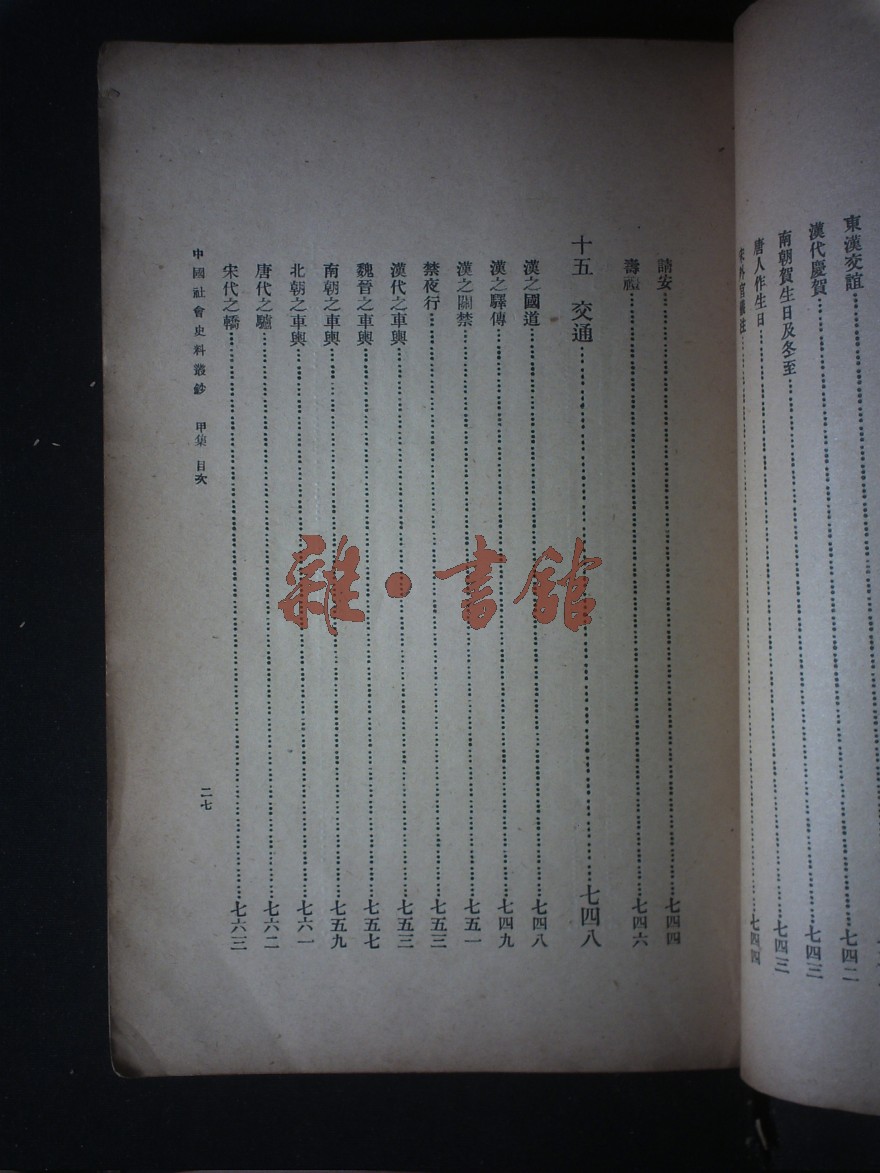 東漢交誼……七四二
漢代慶賀……七四三
南朝賀生日及冬至……七四三
唐人作生日……七四四
請安……七四四
壽……七四六
十五　交通……七四八
漢之國道……七四八
漢之驛傳……七四九
漢之關禁……七五一
禁夜行……七五三
漢代之車輿……七五三
魏晉之車輿……七五七
南朝之車輿……七五九
北朝之車輿……七六一
唐代之驢……七六二
宋代之轎……七六三
中國社會史料叢鈔　甲集　目次
二七
雜·書館